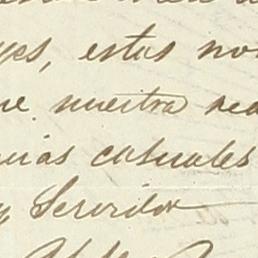 yes, estas no
ne nuestra rea
uias casuales
y Servidor